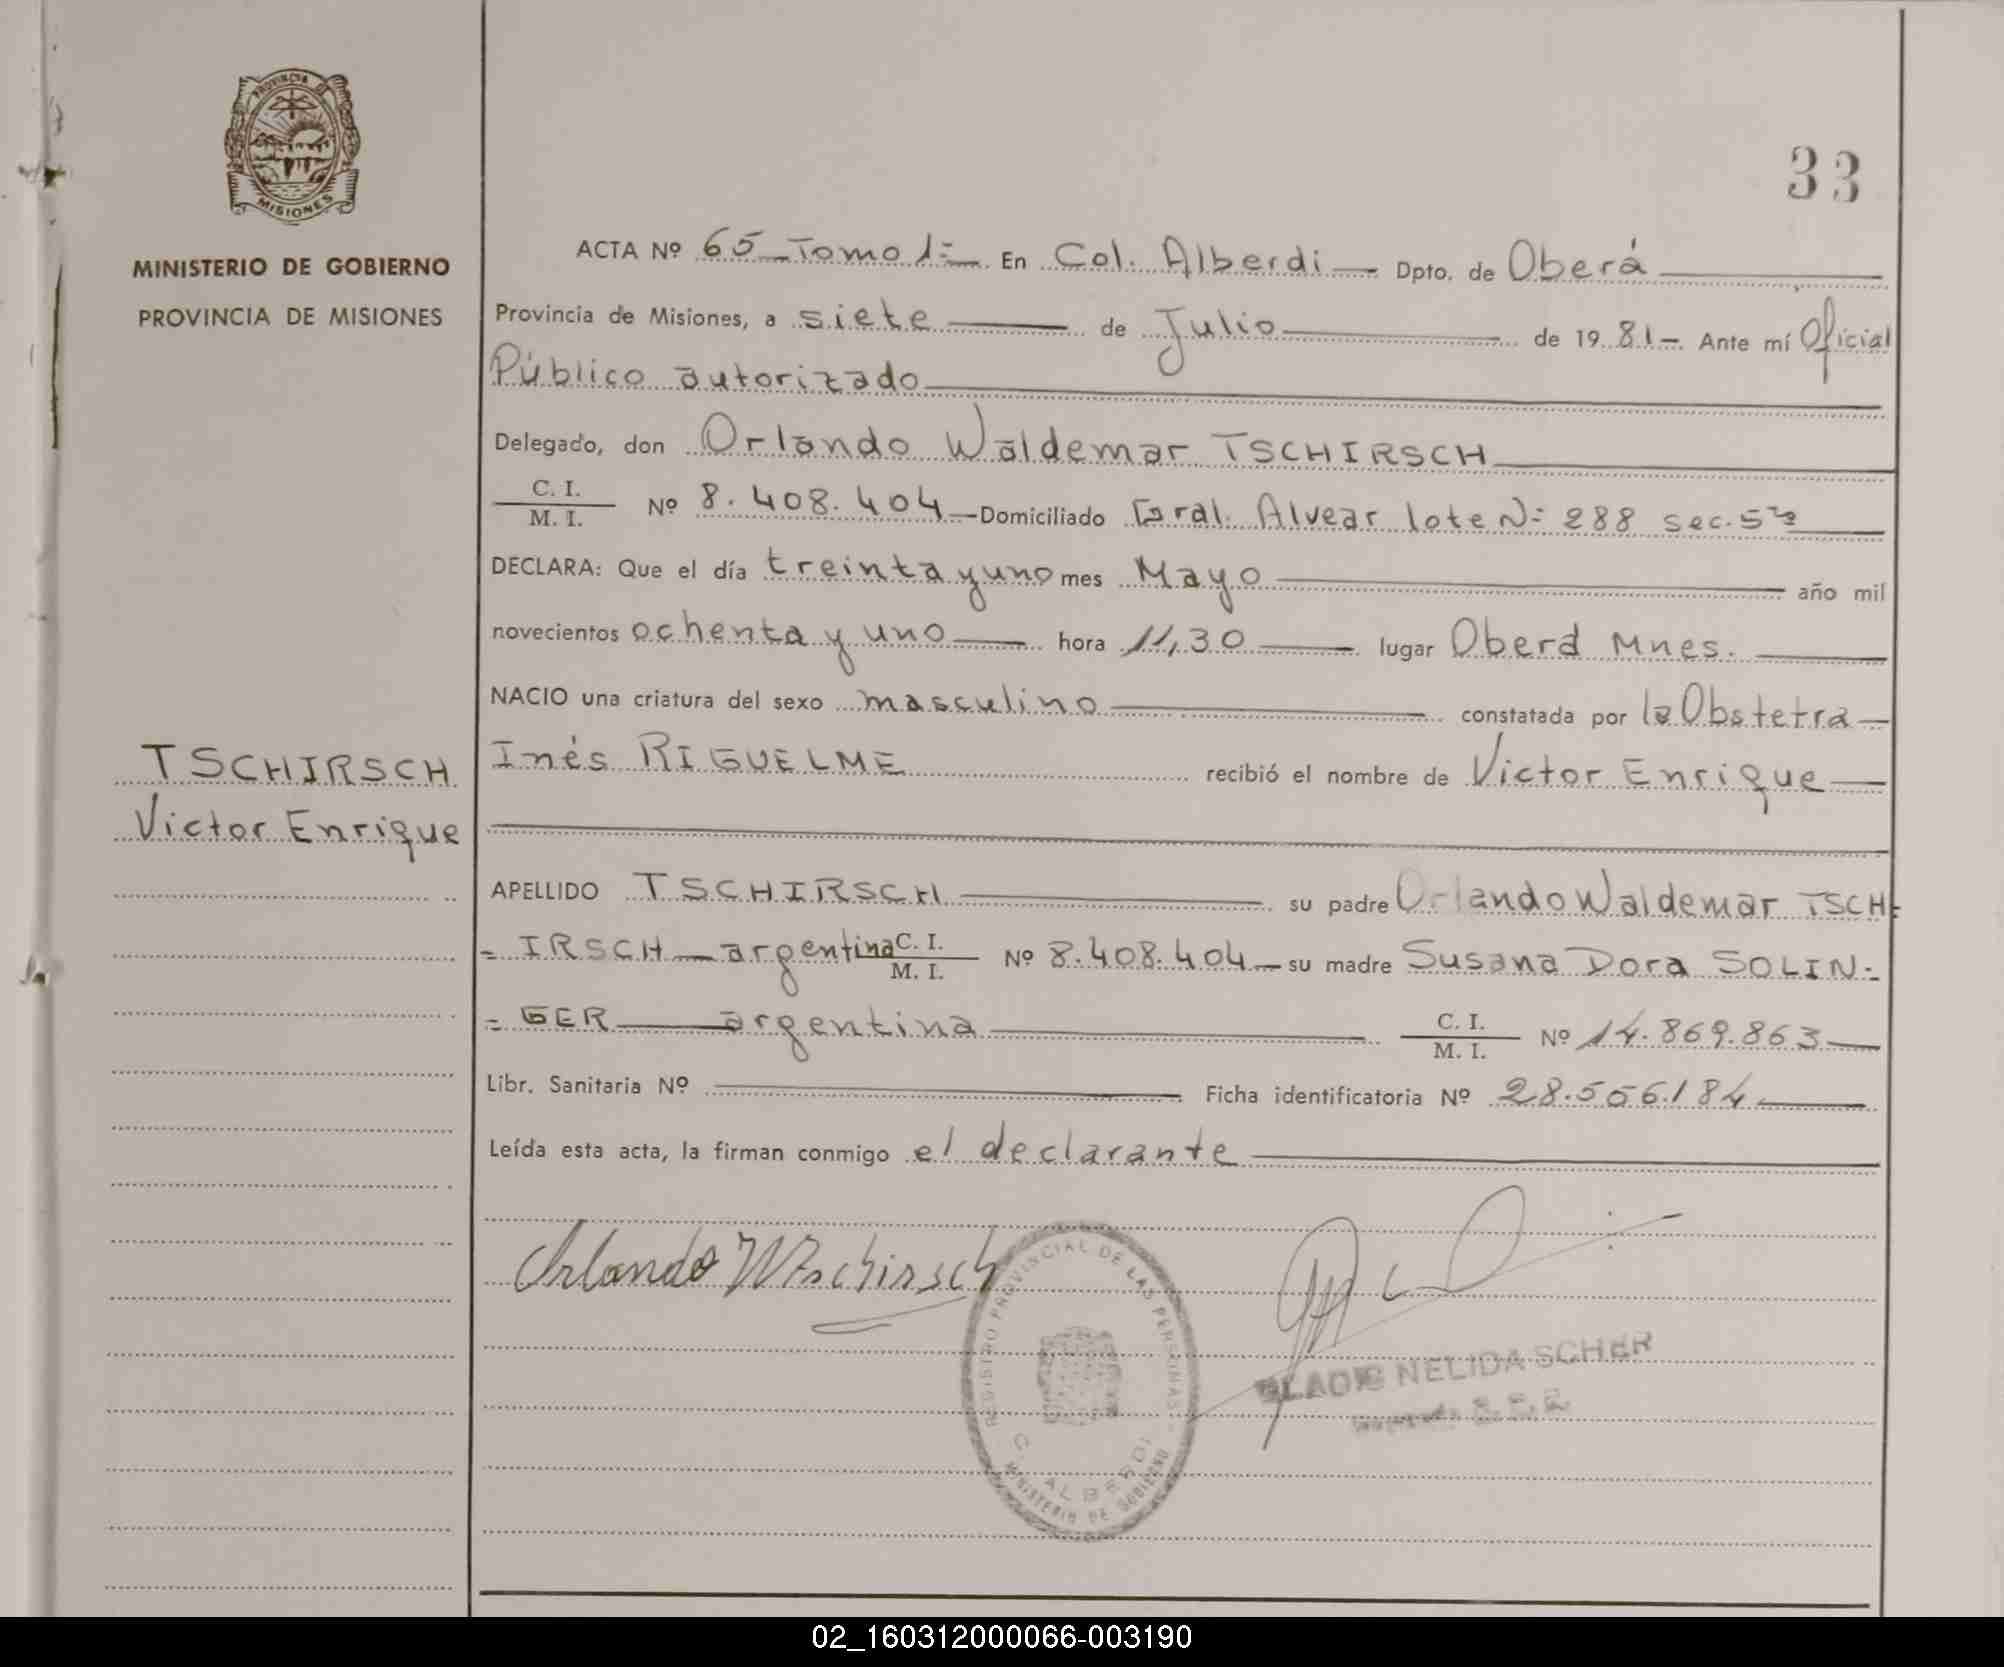 PROVINCIA DE
MISIONES
MINISTERIO DE GOBIERNO
PROVINCIA DE MISIONES
33
ACTA Nº 65 Tomo 1º En Col. Alberdi Dpto. de Oberá
Provincia de Misiones, a siete de Julio de 1981 Ante mí Oficial
Público autorizado
Delegado, don Orlando Waldemar TSCHIRSCH
C. I. / M. I. Nº 8.408.404 Domiciliado Gral. Alvear lote Nº 288 sec. 5ª
DECLARA: Que el día treinta y uno mes Mayo año mil
novecientos ochenta y uno hora 11,30 lugar Oberá Mnes.
NACIO una criatura del sexo masculino constatada por la Obstetra
Inés RIGUELME recibió el nombre de Victor Enrique
TSCHIRSCH
Victor Enrique
APELLIDO TSCHIRSCH su padre Orlando Waldemar TSCH=
= IRSCH argentina C. I. / M. I. Nº 8.408.404 su madre Susana Dora SOLIN=
= GER argentina C. I. / M. I. Nº 14.869.863
Libr. Sanitaria Nº Ficha identificatoria Nº 28.506.184
Leída esta acta, la firman conmigo el declarante
Orlando W Tschirsch
REGISTRO PROVINCIAL DE LAS PERSONAS
C. ALBERDI
MINISTERIO DE GOBIERNO
GLADIS NELIDA SCHER
02_160312000066-003190